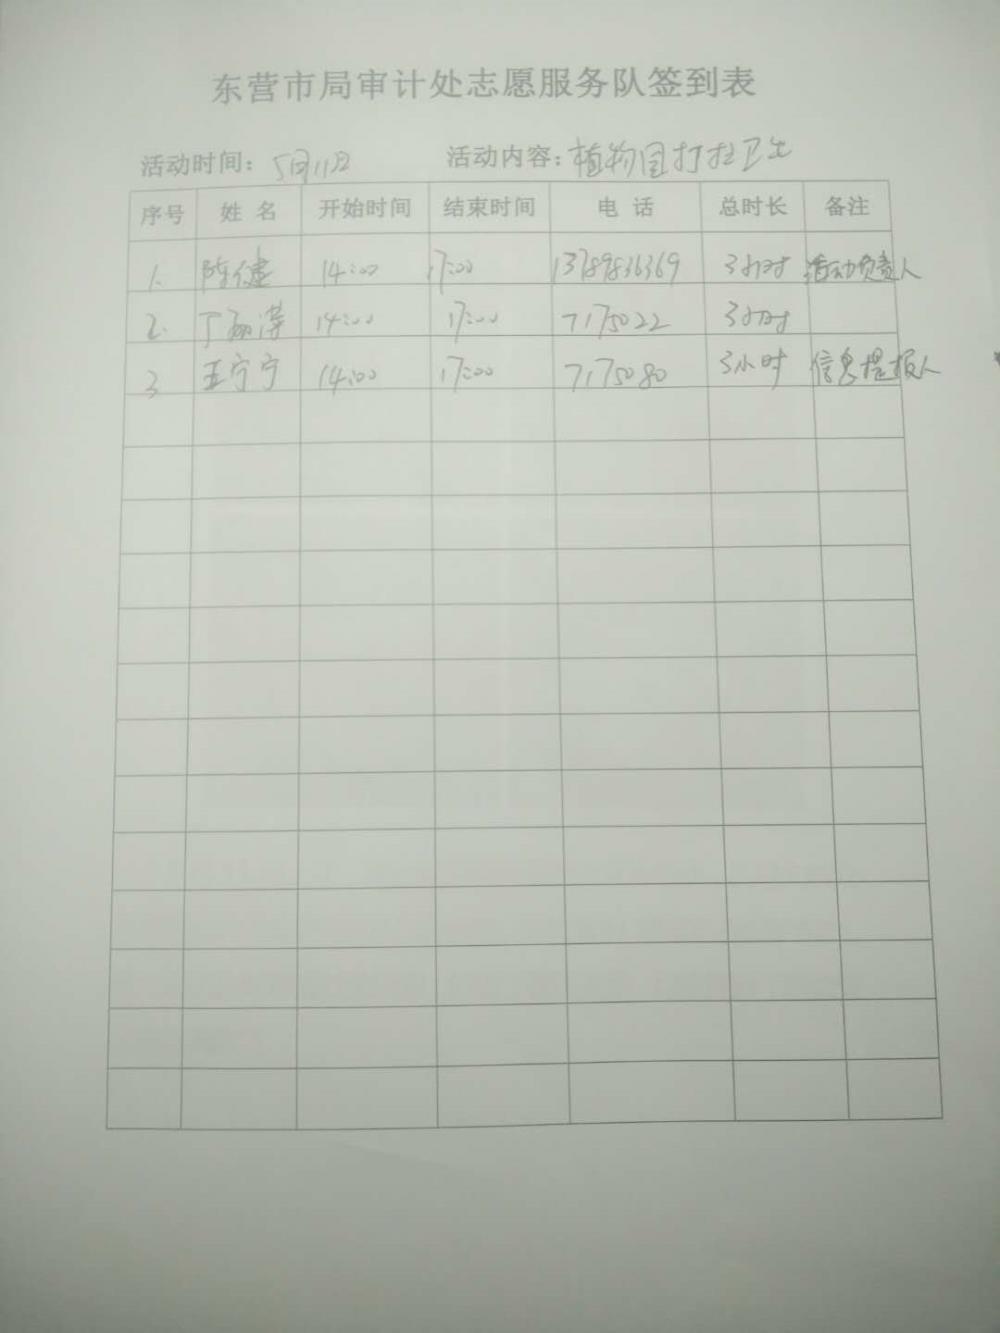 东营市局审计处志愿服务队签到表
活动时间：5月11日 活动内容：植物园打扫卫生
序号 姓名 开始时间 结束时间 电话 总时长 备注
1. 陈健 14:00 17:00 13789836369 3小时 活动负责人
2. 丁 14:00 17:00 7175022 3小时
3 王宁宁 14:00 17:00 7175080 3小时 信息提报人